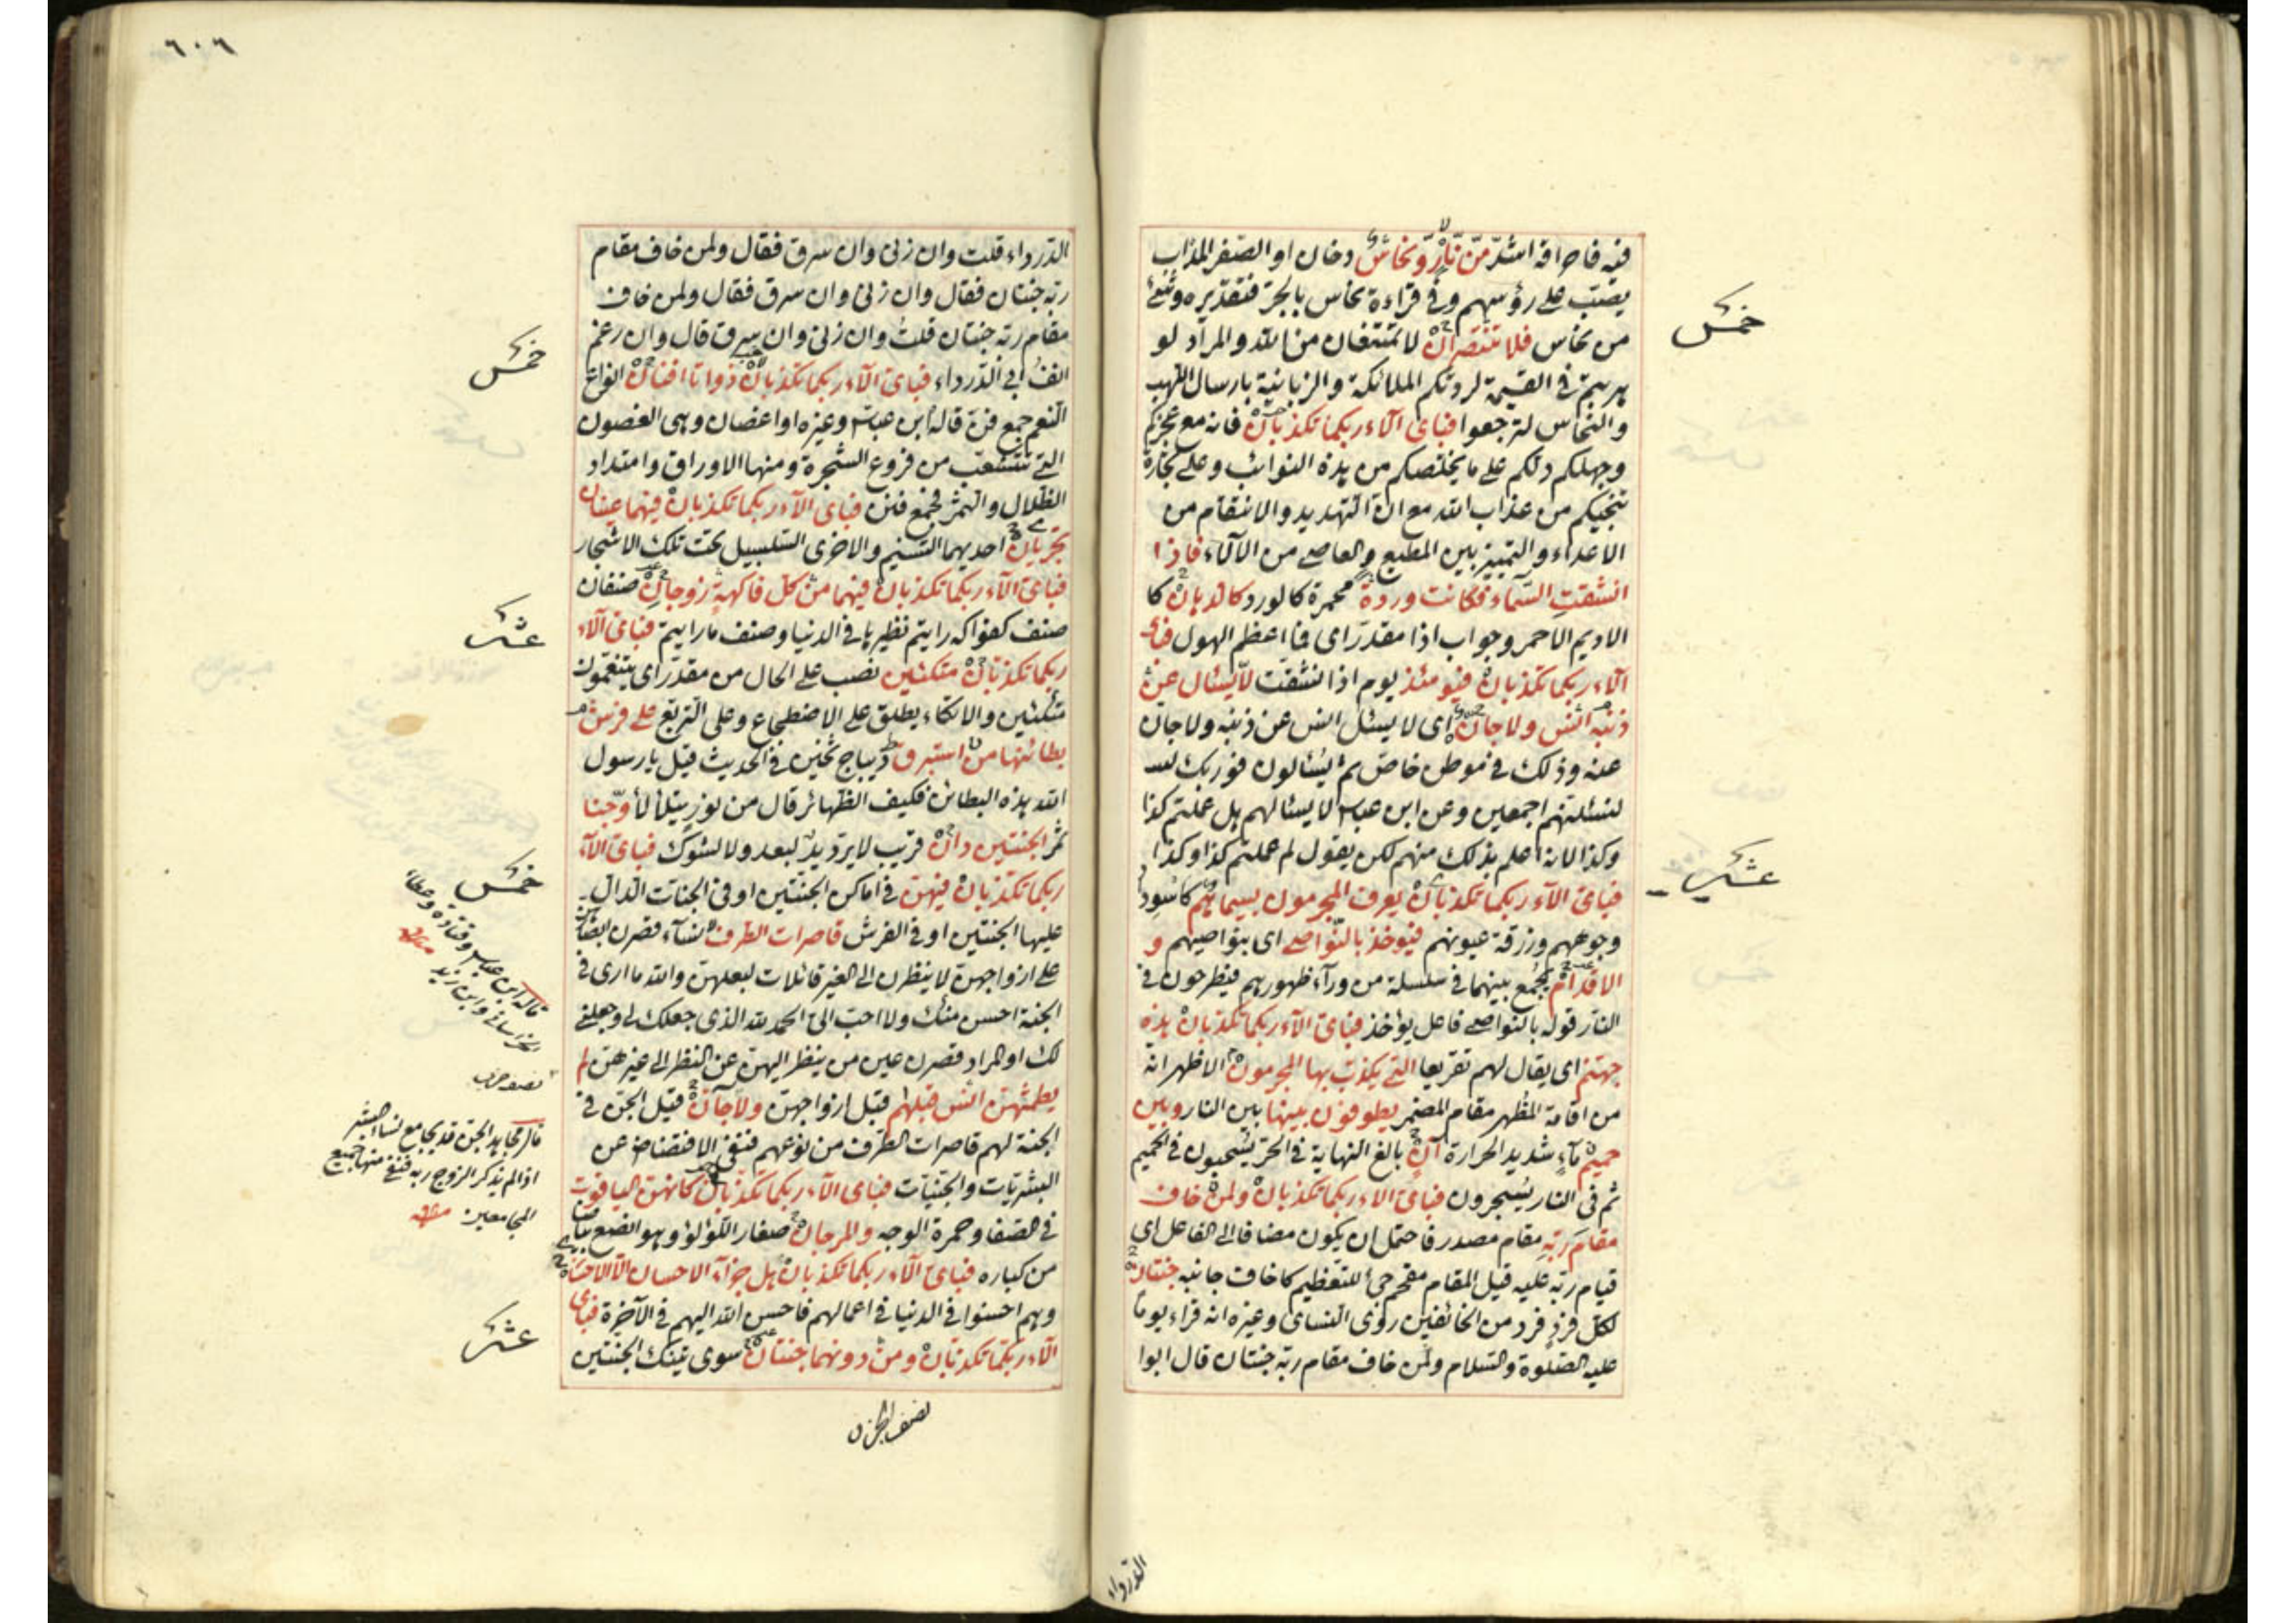 فنه فاحراقه اشدّ مّن نّارٍ وّنحاسٌ دخان او الصّفر المذاب
يصبّ على رؤسهم وفى قراءة نحاس بالجرّ فتقديره وشئ
من نحاس فلا تنتصران لا تمتنعان من الله والمراد لو
هربتم فى القيمة لردتكم الملائكة والزبانية بارسال اللهب
والنحاس لترجعوا فباى آلاء ربكما تكذبان فانه مع عجزكم
وجهلكم دلكم على ما يخلّصكم من هذه النوائب وعلى تجارة
تنجيكم من عذاب الله مع ان التهديد والانتقام من
الاعداء والتمييز بين المطيع والعاصى من الآلاء فاذا
انشقت السّماء فكانت وردة محمرة كالورد كالدهان كا
الاديم الاحمر وجواب اذا مقدّر اى فما اعظم الهول فباى
آلاء ربكما تكذبان فيومئذ يوم اذا انشقت لّا يسئل عن
ذنبه انس ولا جانّ اى لا يسئل انس عن ذنبه ولا جانّ
عنه وذلك فى موطن خاصّ ثم يسئالون فوربك
لنسئلنهم اجمعين وعن ابن عباس لا يسئالهم هل عملتم كذا
وكذا لانه اعلم بذلك منهم لكن يقول لم عملتم كذا وكذا
فباى آلاء ربكما تكذبان يعرف المجرمون بسيماهم كاسود
وجوههم وزرقة عيونهم فيوخذ بالنّواصى اى بنواصيهم و
الاقدام يجمع بينهما فى سلسلة من ورآء ظهورهم فيطرحون فى
النار قوله بالنواصى فاعل يؤخذ فباى آلاء ربكما تكذبان هذه
جهنم اى يقال لهم تقريعا التى يكذب بها المجرمون الاظهر انه
من اقامة المظهر مقام المضمر يطوفون بينها بين النار وبين
حميم ماء شديد الحرارة آنٍ بالغ النهاية فى الحرّ يسحبون فى الحميم
ثم فى النار يسجرون فباى آلاء ربكما تكذبان ولمن خاف
مقام ربّه مقام مصدر فاحتمل ان يكون مضافا الى الفاعل اى
قيام ربه عليه قيل المقام مقحم جئ للتعظيم كاخاف جانبه جنتان
لكل فردٍ فرد من الخائفين روى النساى وغيره انه قراء يوما
عليه الصلوة والسلام ولمن خاف مقام ربه جنتان قال ابوا
الدرداء
خمس
عشر
٦٠٦
الدّرداء قلت وان زنى وان سرق فقال ولمن خاف مقام
ربه جنتان فقال وان زنى وان سرق فقال ولمن خاف
مقام ربه جنتان قلت وان زنى وان سرق قال وان رغم
انف ابى الدّرداء فباى آلاء ربكما تكذبان ذواتا افنان انواع
النعم جمع فنّ قاله ابن عباس وغيره او اغصان وهى الغصون
التى تتشعّب من فروع الشجرة ومنها الاوراق وامتداد
الظلال والثمر فجمع فنن فباى آلاء ربكما تكذبان فيهما عينان
تجريان احديهما التسنيم والاخرى السّلسبيل تحت تلك الاشجار
فباى آلاء ربكما تكذبان فيهما من كل فاكهة زوجان صنفان
صنف كفواكه رايتم نظيرها فى الدنيا وصنف ما رايتم فباى آلاء
ربكما تكذبان متكئين نصب على الحال من مقدّر اى يتنعّمون
متكئين والاتكاء يطلق على الاضطجاع وعلى التربّع على فرش
بطائنها من استبرق ديباج ثخين فى الحديث قيل يا رسول
الله هذه البطائن فكيف الظهائر قال من نور يتلألأ وجنا
ثمر الجنتين دان قريب لا يردّ يدٌ لبعد ولا لشوك فباى آلاء
ربكما تكذبان فيهنّ فى اماكن الجنتين او فى الجنات الدال
عليها الجنتين او فى الفرش قاصرات الطرف نساء قصرن ابصارهن
على ازواجهن لا ينظرن الى الغير قائلات لبعلهن والله ما ارى فى
الجنة احسن منك ولا احب الىّ الحمد لله الذى جعلك لى وجعلنى
لك او المراد قصرن عين من ينظر اليهن عن النظر الى غيرهن لم
يطمثهن انس قبلهم قبل ازواجهن ولا جآنّ قيل الجن فى
الجنة لهم قاصرات الطرف من نوعهم فنفى الافتضاض عن
البشريات والجنيات فباى آلاء ربكما تكذبان كانهن الياقوت
فى الصفا وحمرة الوجه والمرجان صغار اللؤلؤ وهو انصع بياضا
من كباره فباى آلاء ربكما تكذبان هل جزآء الاحسان الّا الاحسان
وهم احسنوا فى الدنيا فى اعمالهم فاحسن الله اليهم فى الآخرة فباى
آلاء ربكما تكذبان ومن دونهما جنتان سوى تينك الجنتين
نصف الحزب
خمس
عشر
خمس
قاله ابن عباس وقتادة وعطاء
الخراسانى وابن زيد منه
نصف حزب
قال مجاهد الجن قد يجامع نساء البشر
اذا لم يذكر الزوج ربه فنفى منها جميع
المجامعين منه
عشر